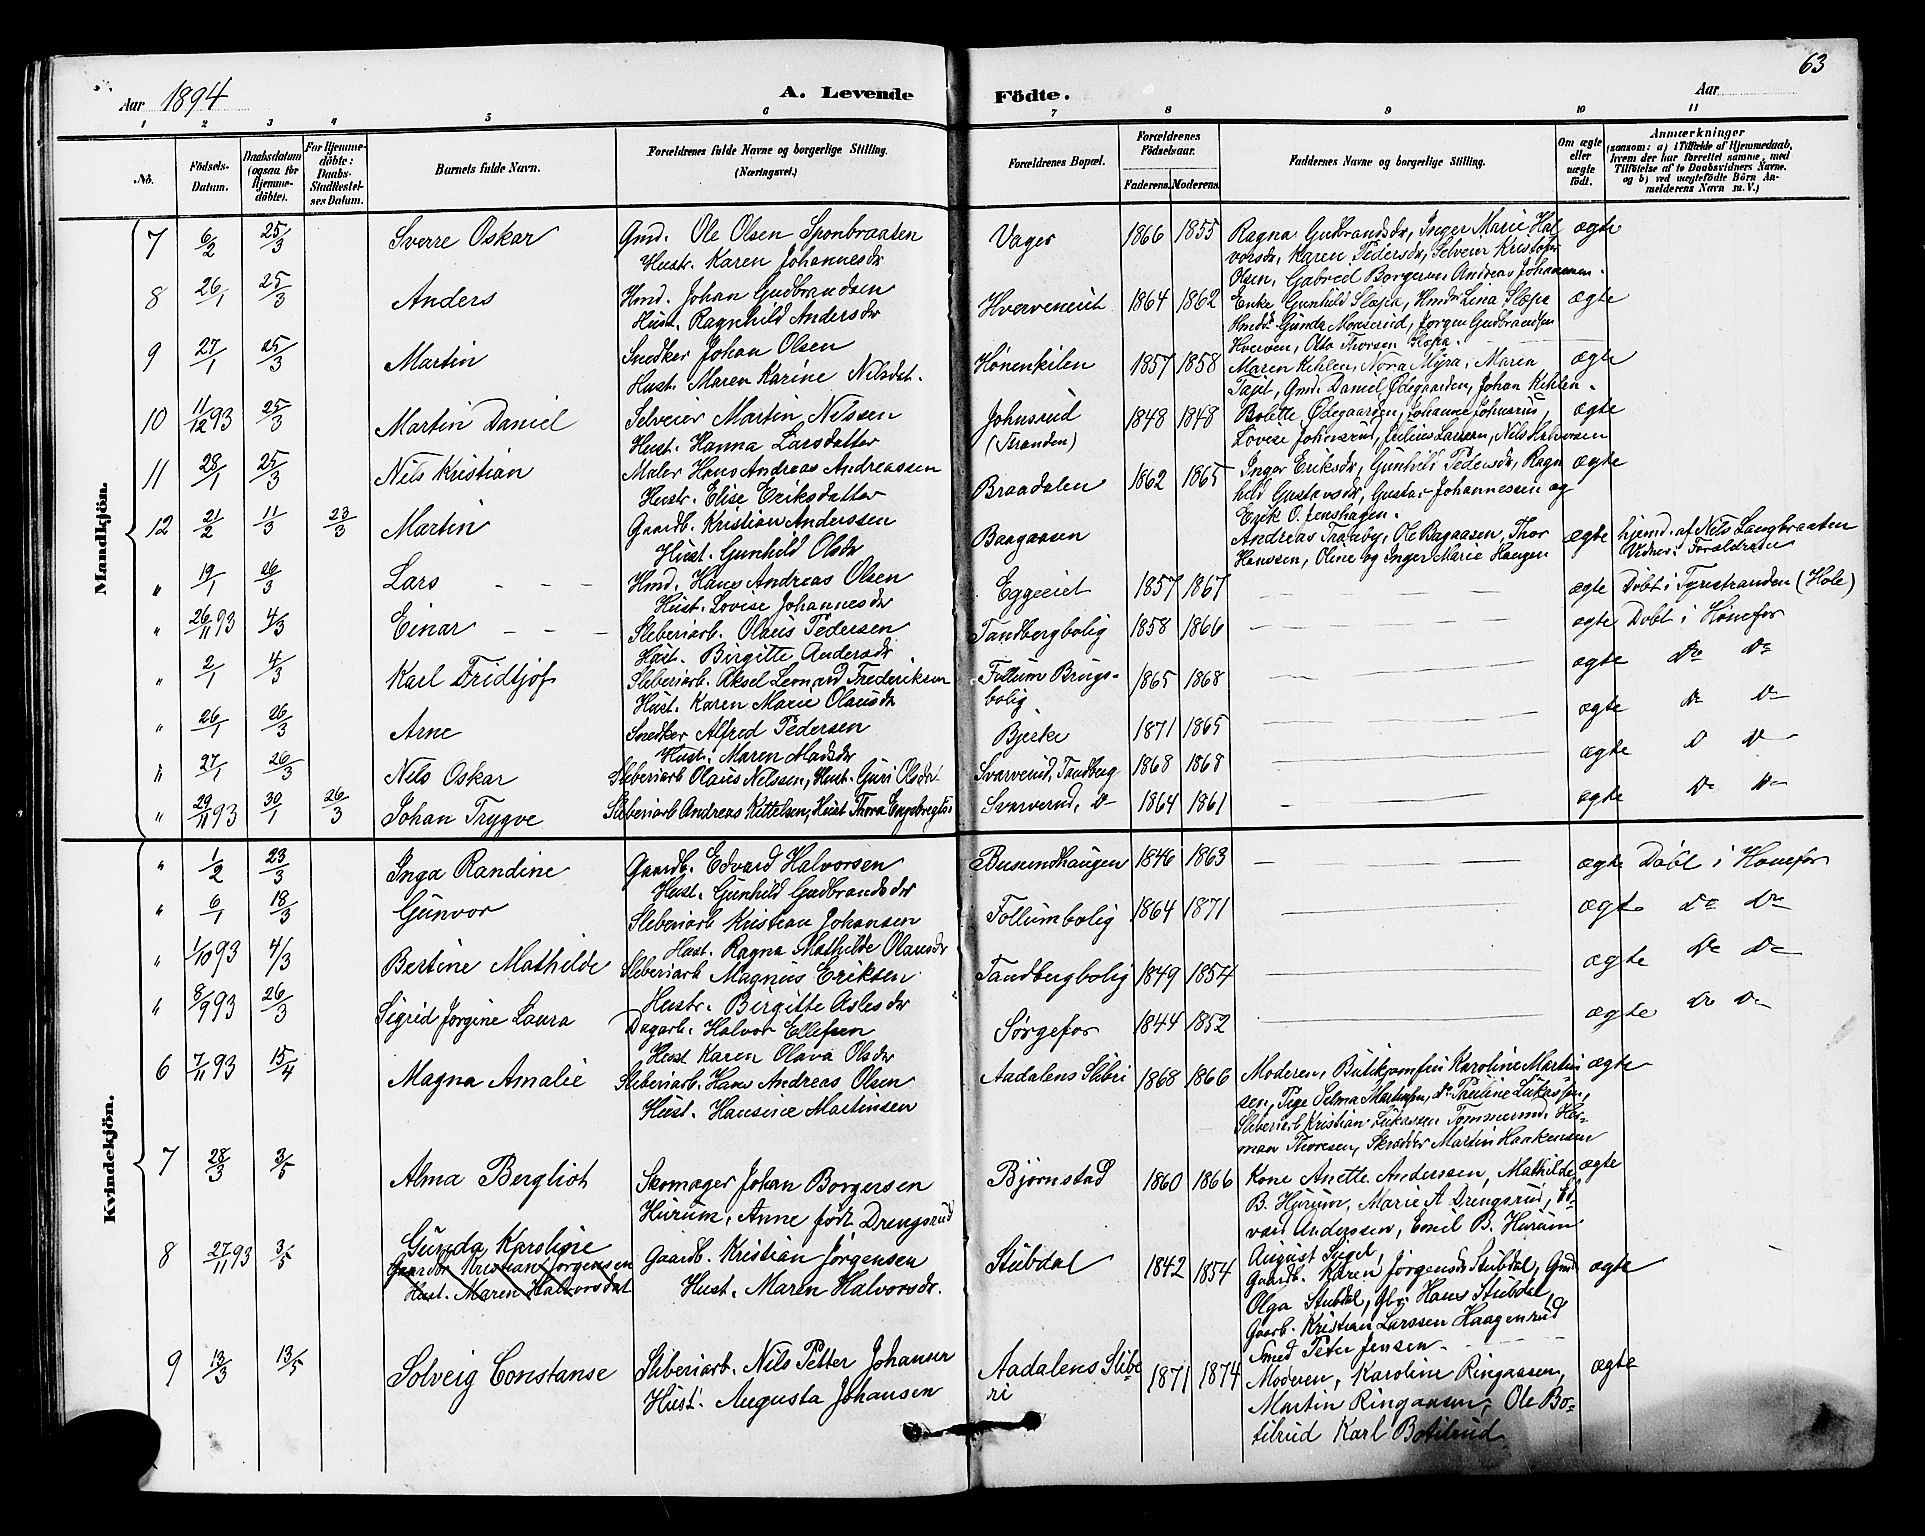 63
Aar 1894 A. Levende Födte. Aar
1 2 3 4 5 6 7 8 9 10 11
No. Födsels-Datum. Daabsdatum (ogsaa for Hjemmedöbte). For Hjemmedöbte: Daabs-Stadfæstelses Datum. Barnets fulde Navn. Forældrenes fulde Navne og borgerlige Stilling. (Næringsvei.) Forældrenes Bopæl. Forældrenes Födselsaar. Faderens. Moderens. Faddernes Navne og borgerlige Stilling. Om ægte eller uægte födt. Anmærkninger (saasom: a) i Tilfælde af Hjemmedaab, hvem der har forrettet samme, med Tilföielse af to Daabsvidners Navne, og b) ved uægtefödte Börn Anmelderens Navn m. V.)
Mandkjön.
7 6/2 25/3 Sverre Oskar Gmd. Ole Olsen Sponbraaten Vager 1866 1855 Ragna Gudbrandsdr, Inger Marie Hal ægte
Hustr. Karen Johannesdr vorsdr, Karen Pedersdr, Selveier Kristofer
Olsen, Gabriel Borgersen Andreas Johannesen.
8 26/1 25/3 Anders Hmd. Johan Gudbrandsen Hverveneiet 1864 1862 Enke Gunhild Slæpa, Hmdr Lina Slæpa ægte
Hust. Ragnhild Andersdr Gunda Monserud, Jørgen Gudbrandsen
Hverven, Otto Thorsen
9 27/1 25/3 Martin Snedker Johan Olsen Hønenkilen 1857 1858 Maren Kihlen, Nora Myra, Maren ægte
Hust. Maren Karine Nilsdat. Gmd. Daniel Ødegaarden, Johan Kihlen.
10 11/12 93 25/3 Martin Daniel Selveier Martin Nilssen Johnsrud 1848 1848 Bolette Ødegaarden, Johanne Johnsrud, ægte
Hust. Hanna Larsdatter (Tranden) Lovise Johnsrud, Julius Larsen, Nils Halvorsen
11 28/1 25/3 Nils Kristian Maler Hans Andreas Andreasen Braadalen 1862 1865 Inger Eriksdr, Gunhild Pedersdr, Ragn ægte
Hustr. Elise Eriksdatter hild Gustavsdr, Gustav Johannessen og
Erik O. Jenshagen.
12 21/2 11/3 23/3 Martin Gaardb. Kristian Anderssen Baagaasen Andreas Traaby, Ole Bagaasen, Thor ægte hjemd. af Nils Langbraaten
Hust. Gunhild Olsdr Hanssen, Oline og Inger Marie Haugen Vidner: Forældrene
" 19/1 26/3 Lars - - - Hmd. Hans Andreas Olsen Eggeeiet 1857 1867 ægte Døbt i Tyristranden (Hole)
Hust. Lovise Johannesdr
" 26/11 93 4/3 Einar - - - Sliberiarb. Olaus Pedersen Tandbergbolig 1858 1866 ægte Døbt i Hønefos
Hust. Birgitte Andersdr
" 2/1 4/3 Karl Fridtjof Sliberiarb. Aksel Leonard Frederiksen Follum Brugs- 1865 1868 ægte Do Do
Hust. Karen Marie Olausdr bolig
" 26/1 26/3 Arne Snedker Alfred Pedersen Bjerke 1871 1865 ægte Do Do
Hust. Maren Madsdr
" 27/1 26/3 Nils Oskar Sliberiarb Olaus Nilssen, Hust. Guri Olsdr Svarverud, Tandberg 1868 1868 ægte D Do
" 29/11 93 30/1 26/3 Johan Trygve Sliberiarb Andreas Kittelsen, Hust Thora Engebregtsd Svarverud, Do 1864 1861 ægte Do Do
Kvindekjön.
" 1/2 23/3 Inga Randine Gaardb. Edvard Halvorsen Busundhaugen 1846 1863 ægte Døbt i Hønefos
Hust. Gunhild Gudbrandsdr
" 6/1 18/3 Gunvor Sliberiarb Kristian Johansen Follumbolig 1864 1871 ægte Do Do
Hust. Ragna Mathilde Olausdr
" 1/10 93 4/3 Bertine Mathilde Sliberiarb Magnus Eriksen Tandbergbolig 1849 1854 ægte Do Do
Hustr. Birgitte Aslesdr
" 8/9 93 26/3 Sigrid Jørgine Laura Dagarb. Halvor Ellefsen Sørgefos 1844 1852 ægte Do Do
Hust Karen Olava Olsdr
6 7/11 93 15/4 Magna Amalie Sliberiarb. Hans Andreas Olsen Aadalens Slibri 1868 1866 Moderen, Butikjomfru Karoline Martin ægte
Hust. Hansine Martinsen sen, Pige Selma Martinsen, Do Pauline Lukassen,
Sliberiarb Kristian Lukassen Tømmermd. Her-
man Thoresen, Skrædder Martin Haakensen
7 28/3 3/5 Alma Bergliot Skomager Johan Borgersen Bjørnstad 1860 1866 Kone Anette Anderssen, Mathilde ægte
Hurum, Anne født Drengsrud B. Hurum, Marie A Drengsrud, Ed-
vard Anderssen, Emil B. Hurum
August
8 27/11 93 3/5 Gunda Karoline Gaardb. Kristian Jørgensen Stubdal 1842 1854 Gaardb. Karen Jørgensdr Stubdal, Gmd ægte
Gaardbr Kristian Jørgensen Hust. Maren Halvorsdr. Olga Stubdal, Gbr. Hans Stubdal,
Hust. Maren Halvorsdat Gaarb. Kristian Larssen Haagenrud
Smed Peter Jensen.
9 13/3 13/5 Solveig Constanse Sliberiarb. Nils Petter Johansen Aadalens Slibe 1871 1874 Moderen, Karoline Ringaasen, ægte
Hust. Augusta Johansen ri Martin Ringaasen, Ole Bo-
tilrud Karl Botilrud